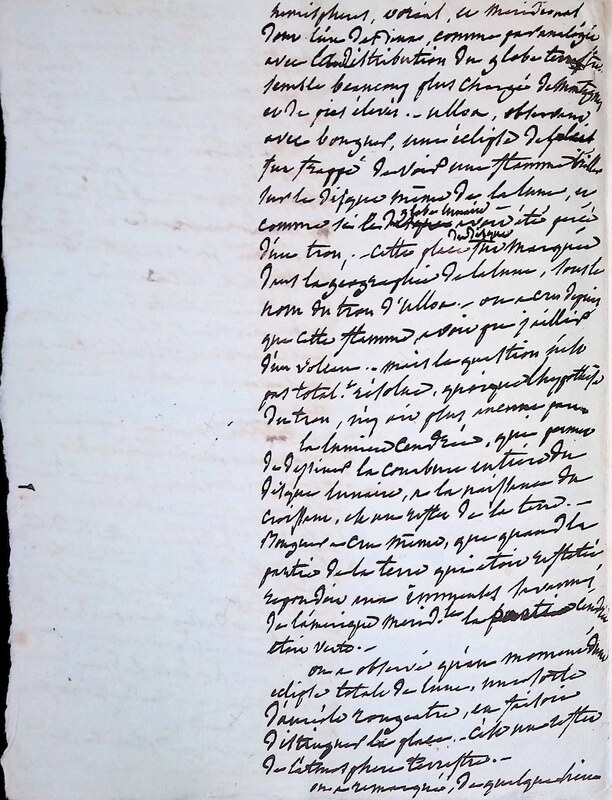 hemispheres, boréal, et méridional
dans l'un des deux, comme par analogie
avec la distribution du globe terrestre
semble beaucoup plus chargé de montagnes
et de pics élevés. - ulloa, observant
avec bouguer, une éclipse de soleil
fut frappé de voir une flamme briller
sur le disque même de la lune, et
comme si le globe lunaire avoit été percé
d'un trou. - cette place du disque fut marquée
dans la géographie de la lune, sous le
nom du trou d'ulloa. - on a cru depuis
que cette flamme avoit pu jaillir
d'un volcan. - mais la question n'est
pas total.t résolue, quoique l'hypothèse
du trou, n'y ait plus aucune part.
la lumière cendrée, qui permet
de dessiner la courbure entière du
disque lunaire, à la naissance du
croissant, est un reflet de la terre. -
Bouguer a cru même, que quand la
partie de la terre qui étoit reflétée
repondoit aux immenses savannes
de l'amérique merid.le la partie cendrée
étoit verte. -
on a observé qu'au moment d'une
eclipse totale de lune, une sorte
d'auréole rougeatre, en faisoit
distinguer la place. - c'est un reflet
de l'atmosphere terrestre. -
on a remarqué, de quelque